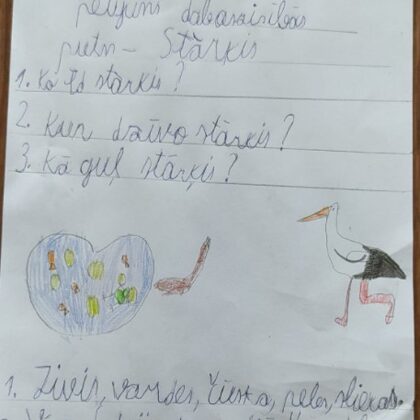 pētījums dabaszinībās
putns - Stārķis
1. Ko ēd stārķis?
2. Kur dzīvo stārķis?
3. Kā guļ stārķis?
1. Zivis, vardes, čūska, peles, sliekas.